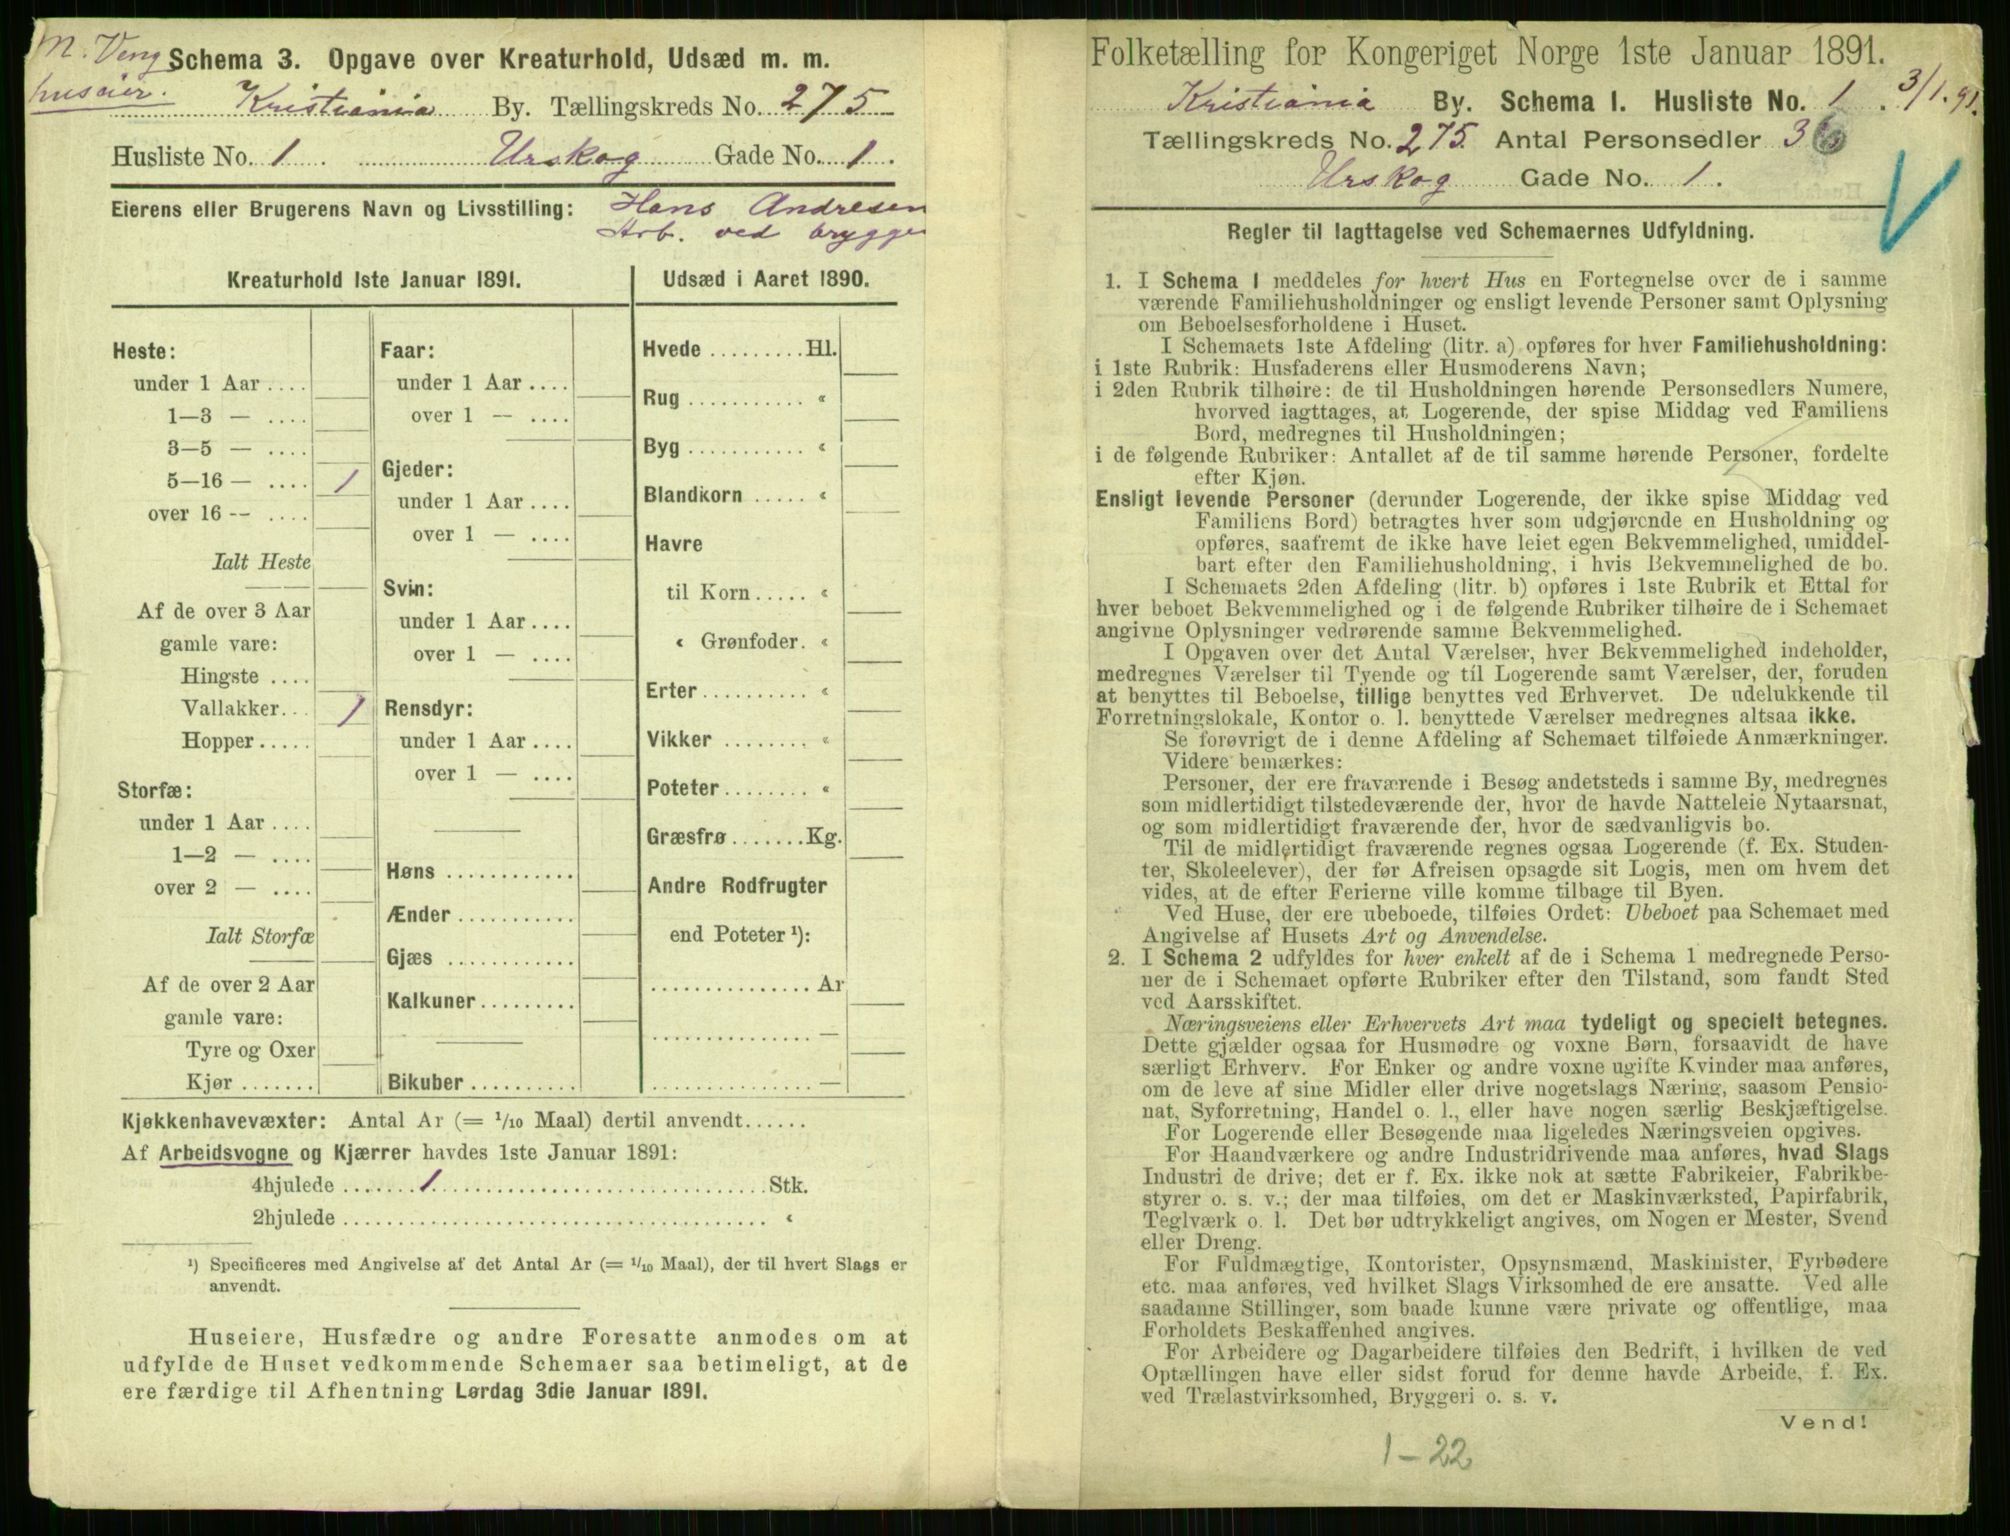 M. Veng
huseier.
Schema 3. Opgave over Kreaturhold, Udsæd m. m.
Kristiania By. Tællingskreds No. 275
Husliste No. 1 Urskog Gade No. 1.
Eierens eller Brugerens Navn og Livsstilling: Hans Andresen
Arb. ved brygge
Kreaturhold 1ste Januar 1891.
Heste:
under 1 Aar ....
1—3 — ....
3—5 — ....
5—16 — .... 1
over 16 -- ....
Ialt Heste
Af de over 3 Aar
gamle vare:
Hingste ....
Vallakker... 1
Hopper.....
Storfæ:
under 1 Aar ....
1—2 — ....
over 2 — ....
Ialt Storfæ
Af de over 2 Aar
gamle vare:
Tyre og Oxer
Kjør .......
Faar:
under 1 Aar ....
over 1 — ....
Gjeder:
under 1 Aar ....
over 1 — ....
Svin:
under 1 Aar ....
over 1 — ....
Rensdyr:
under 1 Aar ....
over 1 — ....
Høns ............
Ænder ...........
Gjæs ............
Kalkuner.........
Bikuber ..........
Udsæd i Aaret 1890.
Hvede .........Hl.
Rug ........... «
Byg ........... «
Blandkorn ..... «
Havre
til Korn..... «
« Grønfoder. «
Erter.......... «
Vikker ........ «
Poteter........ «
Græsfrø .......Kg.
Andre Rodfrugter
end Poteter ¹):
............... Ar
............... —
............... —
Kjøkkenhavevæxter: Antal Ar (= 1/10 Maal) dertil anvendt......
Af Arbeidsvogne og Kjærrer havdes 1ste Januar 1891:
4hjulede .......1...............................Stk.
2hjulede ....................................... «
¹) Specificeres med Angivelse af det Antal Ar (= 1/10 Maal), der til hvert Slags er
anvendt.
Huseiere, Husfædre og andre Foresatte anmodes om at
udfylde de Huset vedkommende Schemaer saa betimeligt, at de
ere færdige til Afhentning Lørdag 3die Januar 1891.
Folketælling for Kongeriget Norge 1ste Januar 1891.
Kristiania By. Schema 1. Husliste No. 1. 3/1.91.
Tællingskreds No. 275. Antal Personsedler 3
Urskog Gade No. 1.
Regler til Iagttagelse ved Schemaernes Udfyldning.
1. I Schema 1 meddeles for hvert Hus en Fortegnelse over de i samme
værende Familiehusholdninger og ensligt levende Personer samt Oplysning
om Beboelsesforholdene i Huset.
I Schemaets 1ste Afdeling (litr. a) opføres for hver Familiehusholdning:
i 1ste Rubrik: Husfaderens eller Husmoderens Navn;
i 2den Rubrik tilhøire: de til Husholdningen hørende Personsedlers Numere,
hvorved iagttages, at Logerende, der spise Middag ved Familiens
Bord, medregnes til Husholdningen;
i de følgende Rubriker: Antallet af de til samme hørende Personer, fordelte
efter Kjøn.
Ensligt levende Personer (derunder Logerende, der ikke spise Middag ved
Familiens Bord) betragtes hver som udgjørende en Husholdning og
opføres, saafremt de ikke have leiet egen Bekvemmelighed, umiddel-
bart efter den Familiehusholdning, i hvis Bekvemmelighed de bo.
I Schemaets 2den Afdeling (litr. b) opføres i 1ste Rubrik et Ettal for
hver beboet Bekvemmelighed og i de følgende Rubriker tilhøire de i Schemaet
angivne Oplysninger vedrørende samme Bekvemmelighed.
I Opgaven over det Antal Værelser, hver Bekvemmelighed indeholder,
medregnes Værelser til Tyende og til Logerende samt Værelser, der, foruden
at benyttes til Beboelse, tillige benyttes ved Erhvervet. De udelukkende til
Forretningslokale, Kontor o. l. benyttede Værelser medregnes altsaa ikke.
Se forøvrigt de i denne Afdeling af Schemaet tilføiede Anmærkninger.
Videre bemærkes:
Personer, der ere fraværende i Besøg andetsteds i samme By, medregnes
som midlertidigt tilstedeværende der, hvor de havde Natteleie Nytaarsnat,
og som midlertidigt fraværende der, hvor de sædvanligvis bo.
Til de midlertidigt fraværende regnes ogsaa Logerende (f. Ex. Studen-
ter, Skoleelever), der før Afreisen opsagde sit Logis, men om hvem det
vides, at de efter Ferierne ville komme tilbage til Byen.
Ved Huse, der ere ubeboede, tilføies Ordet: Ubeboet paa Schemaet med
Angivelse af Husets Art og Anvendelse.
2. I Schema 2 udfyldes for hver enkelt af de i Schema 1 medregnede Perso-
ner de i Schemaet opførte Rubriker efter den Tilstand, som fandt Sted
ved Aarsskiftet.
Næringsveiens eller Erhvervets Art maa tydeligt og specielt betegnes.
Dette gjælder ogsaa for Husmødre og voxne Børn, forsaavidt de have
særligt Erhverv. For Enker og andre voxne ugifte Kvinder maa anføres,
om de leve af sine Midler eller drive nogetslags Næring, saasom Pensio-
nat, Syforretning, Handel o. l., eller have nogen særlig Beskjæftigelse.
For Logerende eller Besøgende maa ligeledes Næringsveien opgives.
For Haandværkere og andre Industridrivende maa anføres, hvad Slags
Industri de drive; det er f. Ex. ikke nok at sætte Fabrikeier, Fabrikbe-
styrer o. s. v.; der maa tilføies, om det er Maskinværksted, Papirfabrik,
Teglværk o. l. Det bør udtrykkeligt angives, om Nogen er Mester, Svend
eller Dreng.
For Fuldmægtige, Kontorister, Opsynsmænd, Maskinister, Fyrbødere
etc. maa anføres, ved hvilket Slags Virksomhed de ere ansatte. Ved alle
saadanne Stillinger, som baade kunne være private og offentlige, maa
Forholdets Beskaffenhed angives.
For Arbeidere og Dagarbeidere tilføies den Bedrift, i hvilken de ved
Optællingen have eller sidst forud for denne havde Arbeide, f. Ex.
ved Trælastvirksomhed, Bryggeri o. s. v.
Vend!
1-22